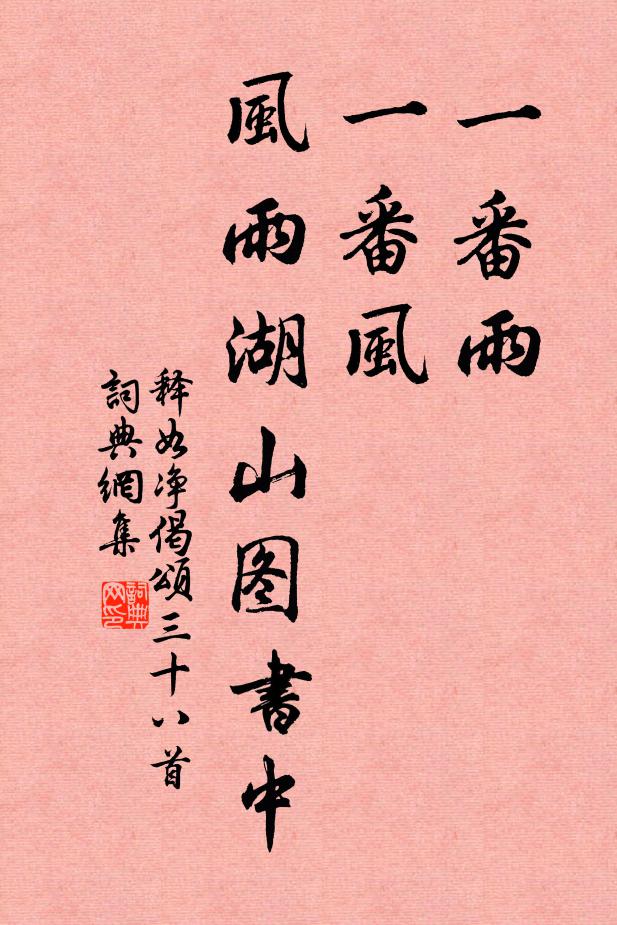 一番雨
一番風
風雨湖山图書中
釋如净偈頌三十八首
詞典網集
詞典网印